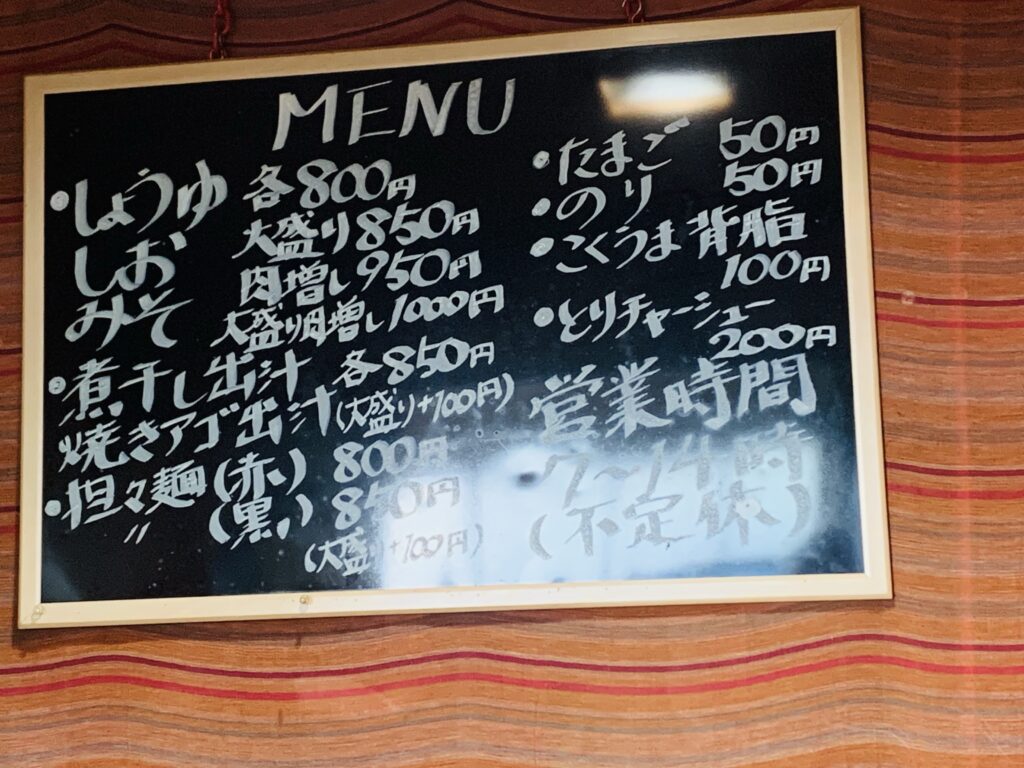 MENU
・しょうゆ 各800円
しお 大盛り850円
みそ 肉増し950円
大盛り肉増し1000円
・煮干し出汁 各850円
焼きアゴ出汁(大盛り+100円)
・担々麺(赤) 800円
〃 (黒) 850円
(大盛り+100円)
・たまご 50円
・のり 50円
・こくうま背脂
100円
・とりチャーシュー
200円
営業時間
7〜14時
(不定休)